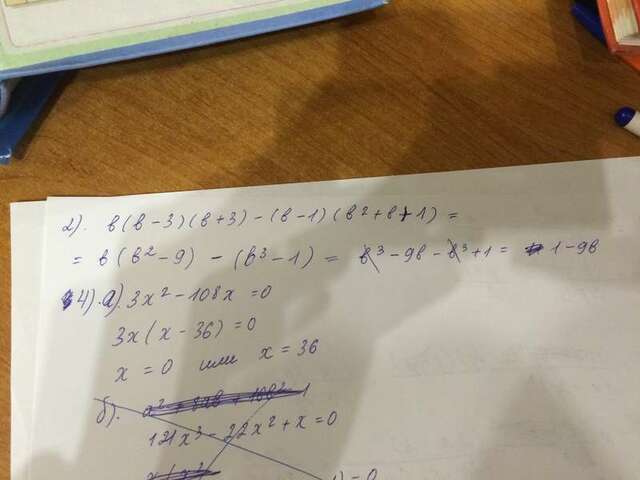 2). в(в-3)(в+3)-(в-1)(в²+в+1)=
= в(в²-9) - (в³-1) = в³-9в-в³+1= 1-9в
4).а).3x²-108x=0
3x(x-36)=0
x=0 или x=36
б).
121x³-22x²+x=0
)=0